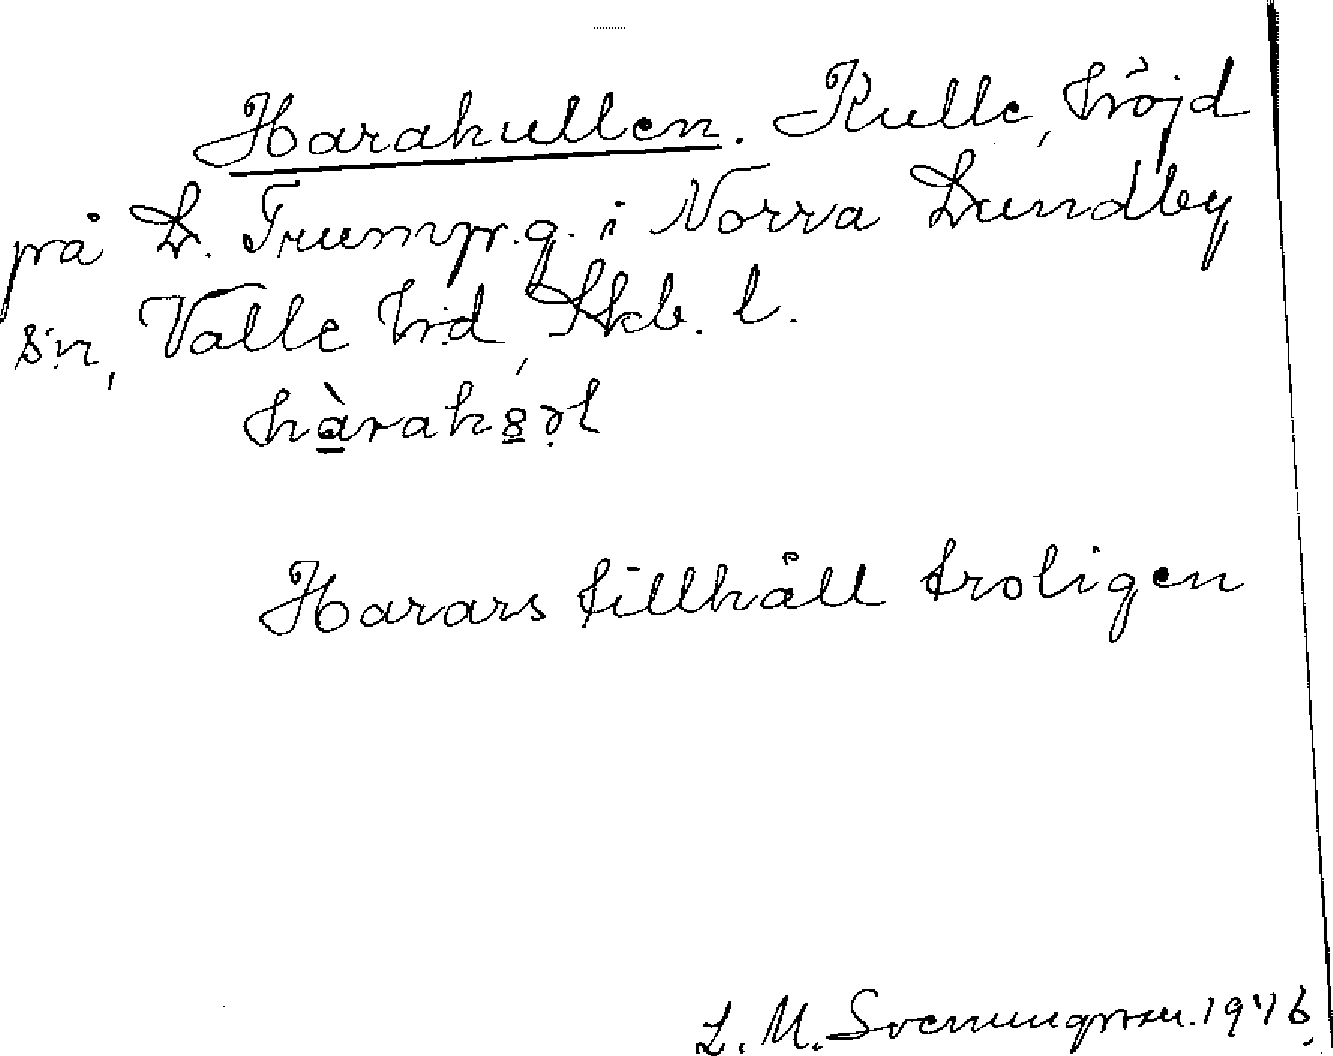 Harakullen. Kulle, höjd
på L. Trumpr.g. i Norra Lundby
sn, Valle hd, Skb. l.
Harars tillhåll troligen
L. M. Svenungsson. 1946.